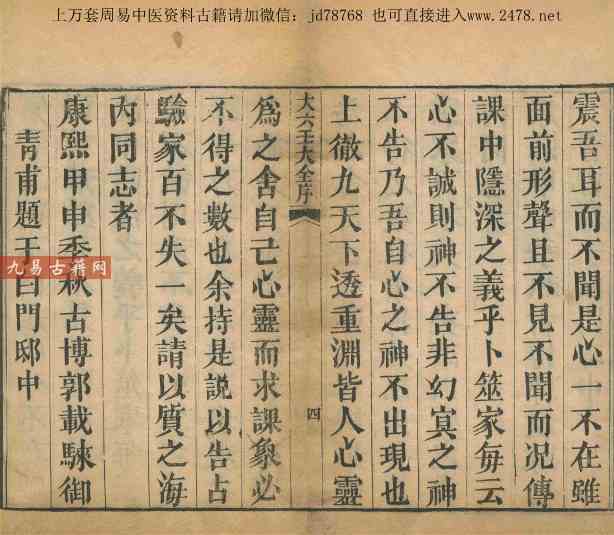 上万套周易中医资料古籍请加微信：jd78768 也可直接进入www.2478.net
震吾耳而不聞是心一不在雖
面前形聲且不見不聞而況傳
課中隱深之義乎卜筮家每云
心不誠則神不告非幻冥之神
不告乃吾自心之神不出現也
上徹九天下透重淵皆人心靈
大六壬大全序
四
爲之舍自己心靈而求課象必
不得之數也余持是說以告占
驗家百不失一矣請以質之海
內同志者
康熙甲申季秋古博郭載騋御
青甫題于白門邸中
九易古籍网